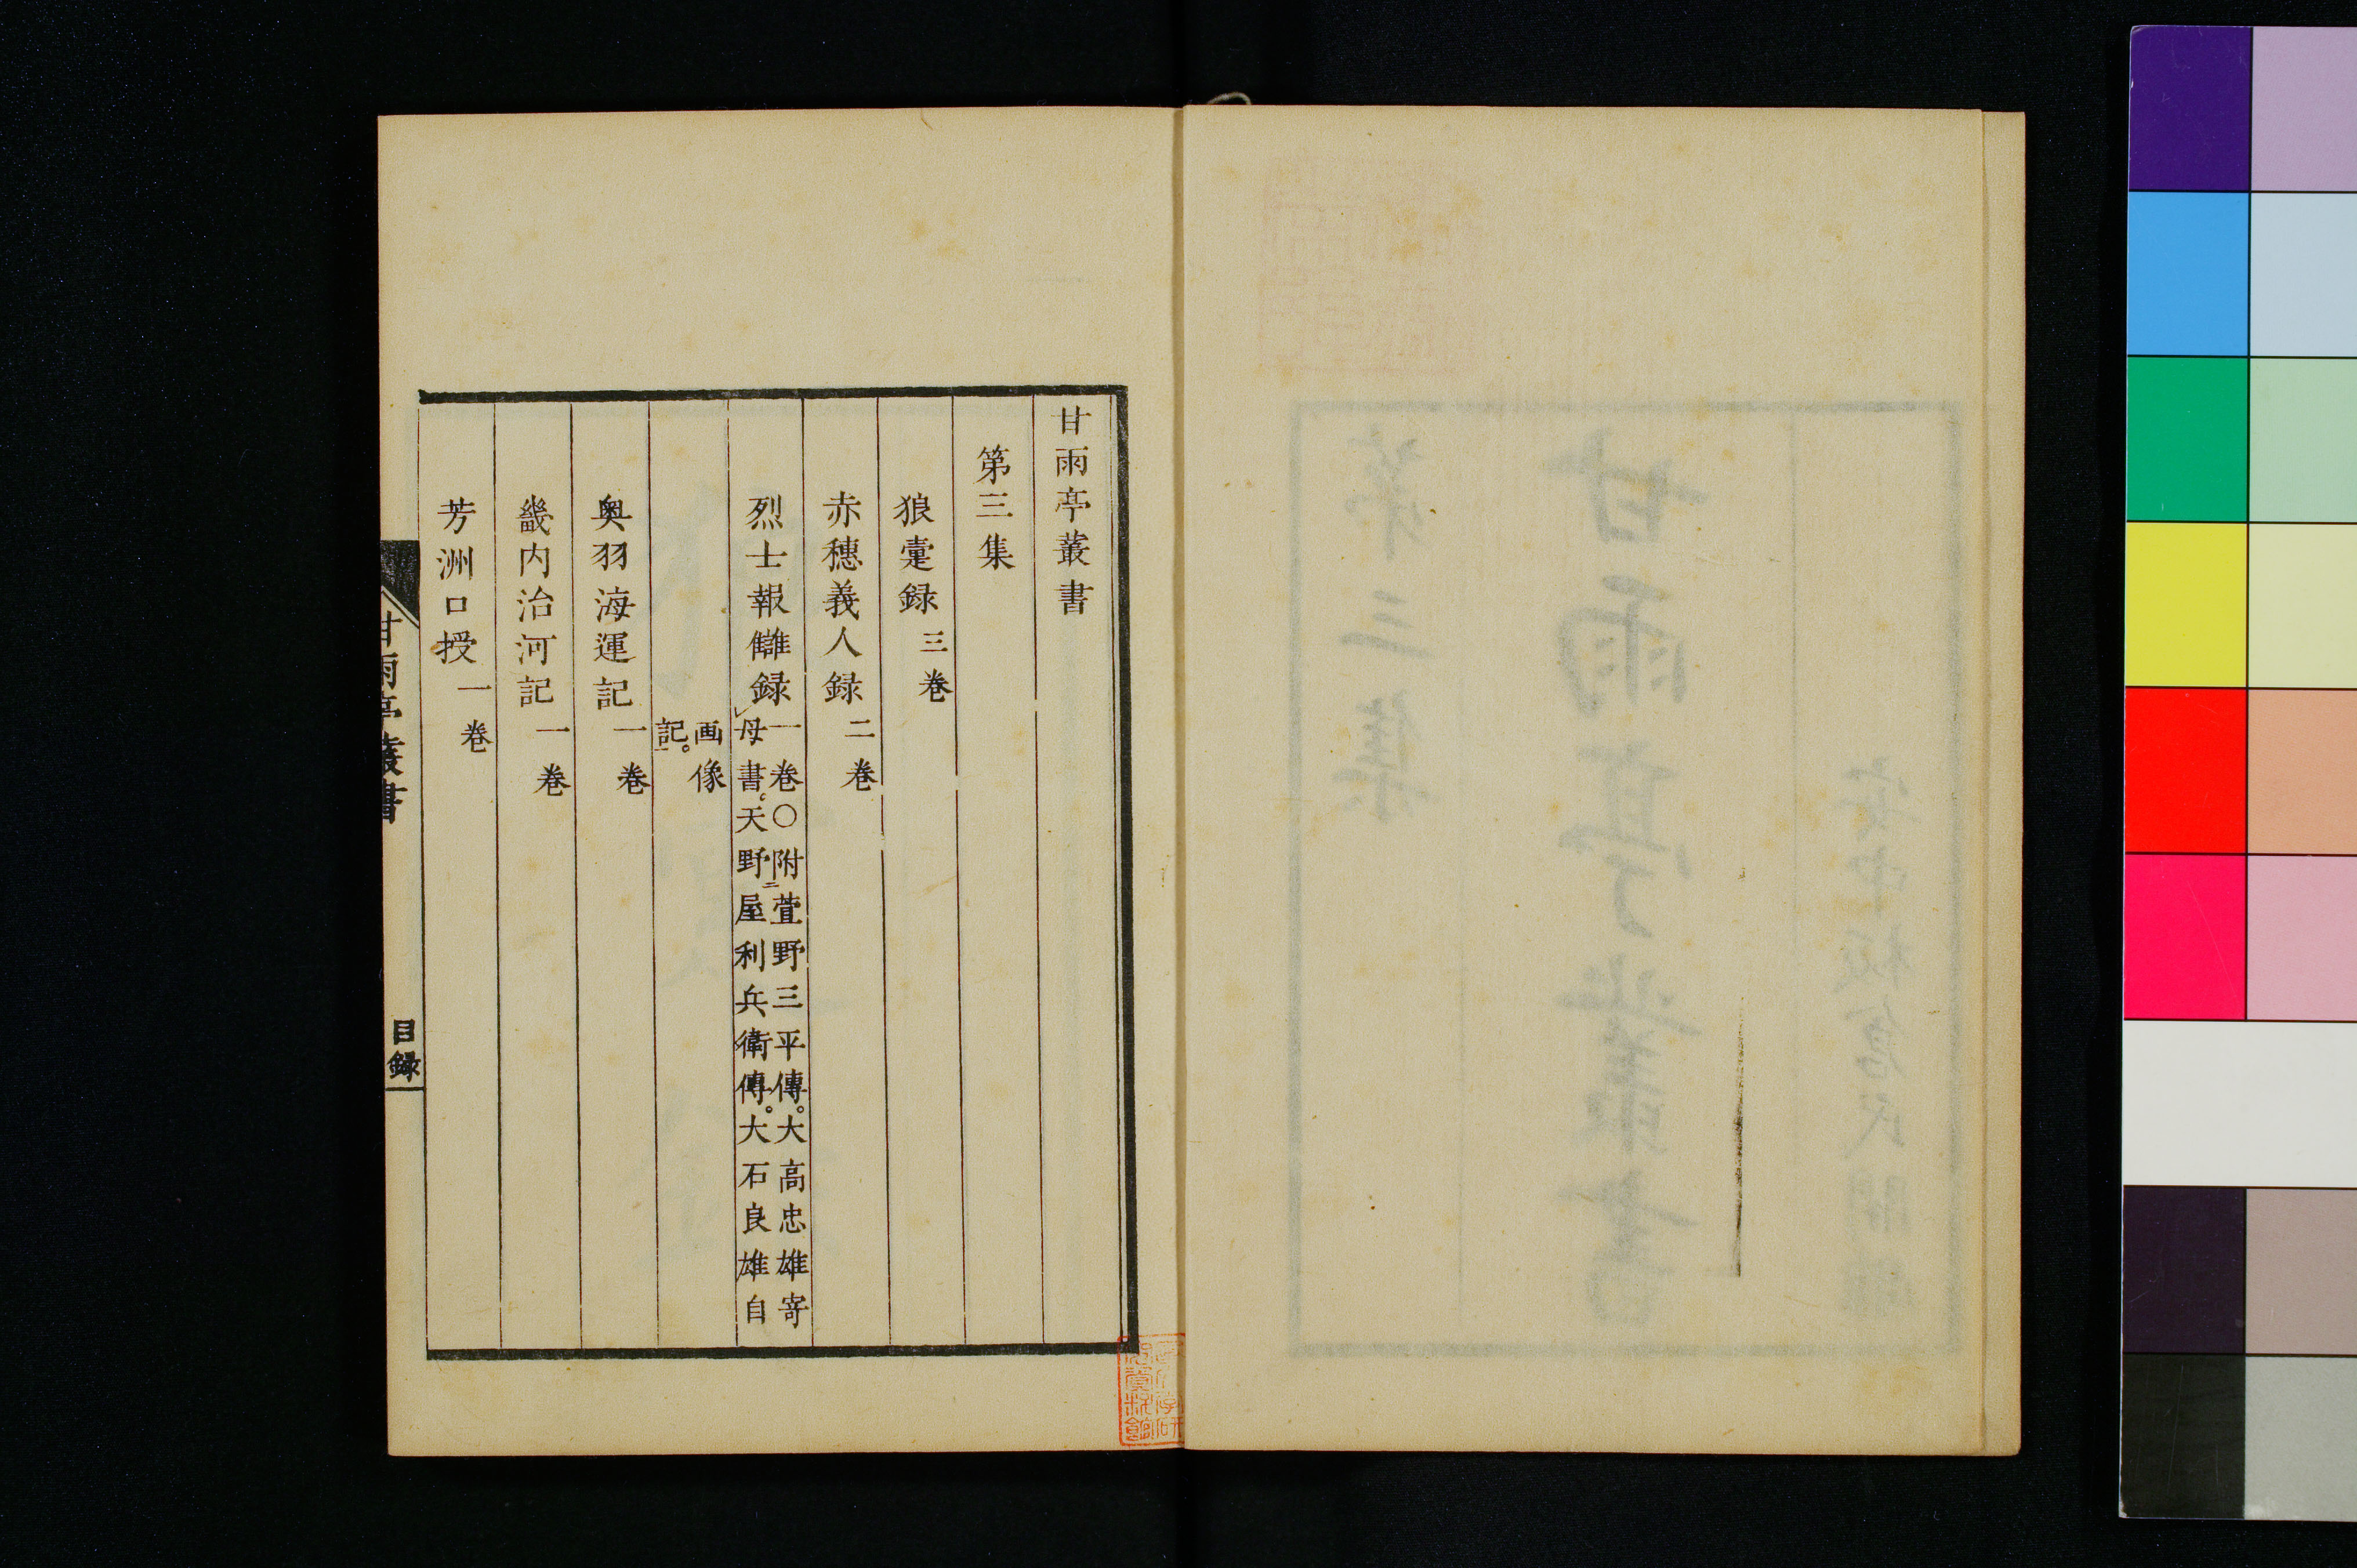 甘雨亭叢書
第三集
狼疐録 三巻
赤穗義人録 二巻
烈士報讎録 一巻〇附萱野三平傳。大高忠雄寄
母書。天野屋利兵衛傳。大石良雄自
画像
記。
奥羽海運記 一巻
畿内治河記 一巻
芳洲口授 一巻
甘雨亭叢書
目録